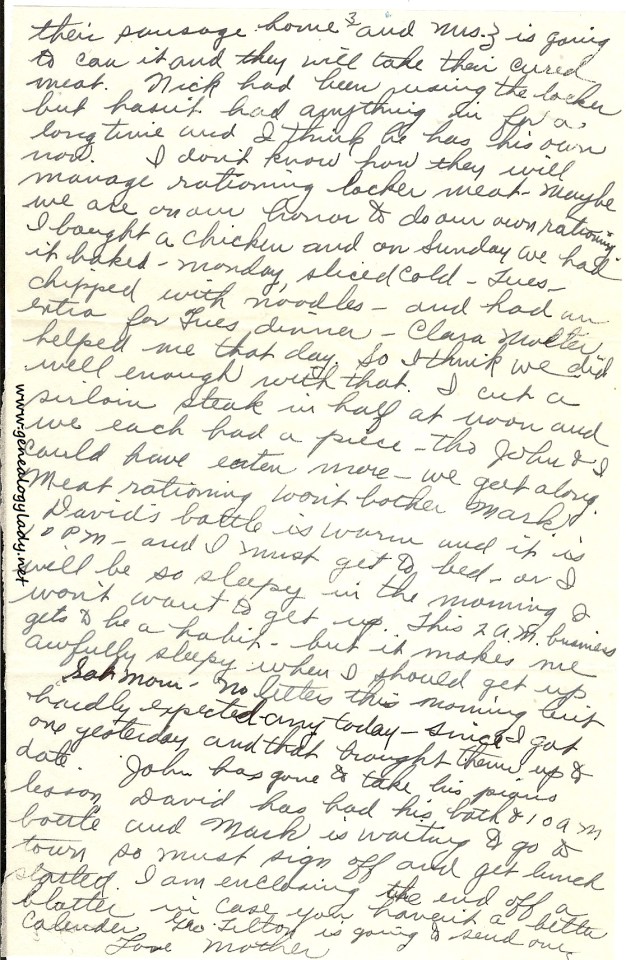 their sausage home and Mrs. Z is going
to can it and they will take their cured
meat. Nick had been using the locker
but hasn't had anything in for a
long time and I think he has his own
now. I don't know how they will
manage rationing locker meat - maybe
we are on our honor to do our own rationing.
I bought a chicken and on Sunday we had
it baked - Monday, sliced cold - Tues -
chipped with noodles - and had an
extra for Tues dinner - Clara Molter
helped me that day. So I think we did
well enough with that. I cut a
sirloin steak in half at noon and
we each had a piece - tho John & I
could have eaten more - we get along.
Meat rationing won't bother Mark!
David's bottle is warm and it is
PM - and I must get to bed - or I
will be so sleepy in the morning I
won't want to get up. This 2 A.M. business
gets to be a habit - but it makes me
awfully sleepy when I should get up.
Sat morn - No letters this morning but
hardly expected any today - since I got
one yesterday and that brought them up to
date. John has gone to take his piano
lesson, David has had his bath & 10 a m
bottle and Mark is waiting to go to
town so must sign off and get lunch
started. I am enclosing the end off a
blotter in case you haven't a better
calender. Geo. Tilton is going to send one
Love Mother
www.genealogylady.net